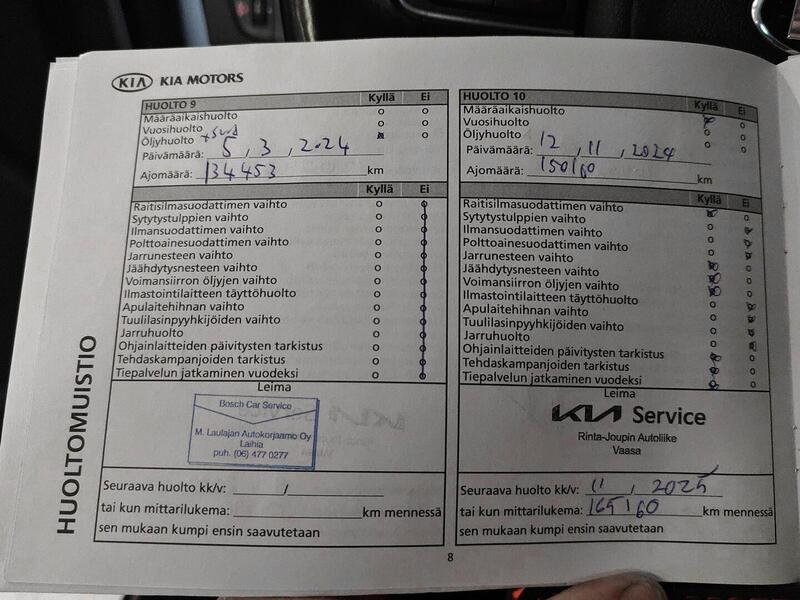 KIA KIA MOTORS
HUOLTO 9 Kyllä Ei
Määräaikaishuolto
Vuosihuolto
Öljyhuolto
Päivämäärä: 5, 3, 2024
Ajomäärä: 134453 km
Kyllä Ei
Raitisilmasuodattimen vaihto
Sytytystulppien vaihto
Ilmansuodattimen vaihto
Polttoainesuodattimen vaihto
Jarrunesteen vaihto
Jäähdytysnesteen vaihto
Voimansiirron öljyjen vaihto
Ilmastointilaitteen täyttöhuolto
Apulaitehihnan vaihto
Tuulilasinpyyhkijöiden vaihto
Jarruhuolto
Ohjainlaitteiden päivitysten tarkistus
Tehdaskampanjoiden tarkistus
Tiepalvelun jatkaminen vuodeksi
Leima
Bosch Car Service
M. Laulajan Autokorjaamo Oy
Laihia
puh. (06) 477 0277
Seuraava huolto kk/v: /
tai kun mittarilukema: km mennessä
sen mukaan kumpi ensin saavutetaan
HUOLTO 10 Kyllä Ei
Määräaikaishuolto
Vuosihuolto
Öljyhuolto
Päivämäärä: 12, 11, 2024
Ajomäärä: 150160 km
Kyllä Ei
Raitisilmasuodattimen vaihto
Sytytystulppien vaihto
Ilmansuodattimen vaihto
Polttoainesuodattimen vaihto
Jarrunesteen vaihto
Jäähdytysnesteen vaihto
Voimansiirron öljyjen vaihto
Ilmastointilaitteen täyttöhuolto
Apulaitehihnan vaihto
Tuulilasinpyyhkijöiden vaihto
Jarruhuolto
Ohjainlaitteiden päivitysten tarkistus
Tehdaskampanjoiden tarkistus
Tiepalvelun jatkaminen vuodeksi
Leima
KIA Service
Rinta-Joupin Autoliike
Vaasa
Seuraava huolto kk/v: 11 / 2025
tai kun mittarilukema: 165160 km mennessä
sen mukaan kumpi ensin saavutetaan
HUOLTOMUISTIO
8